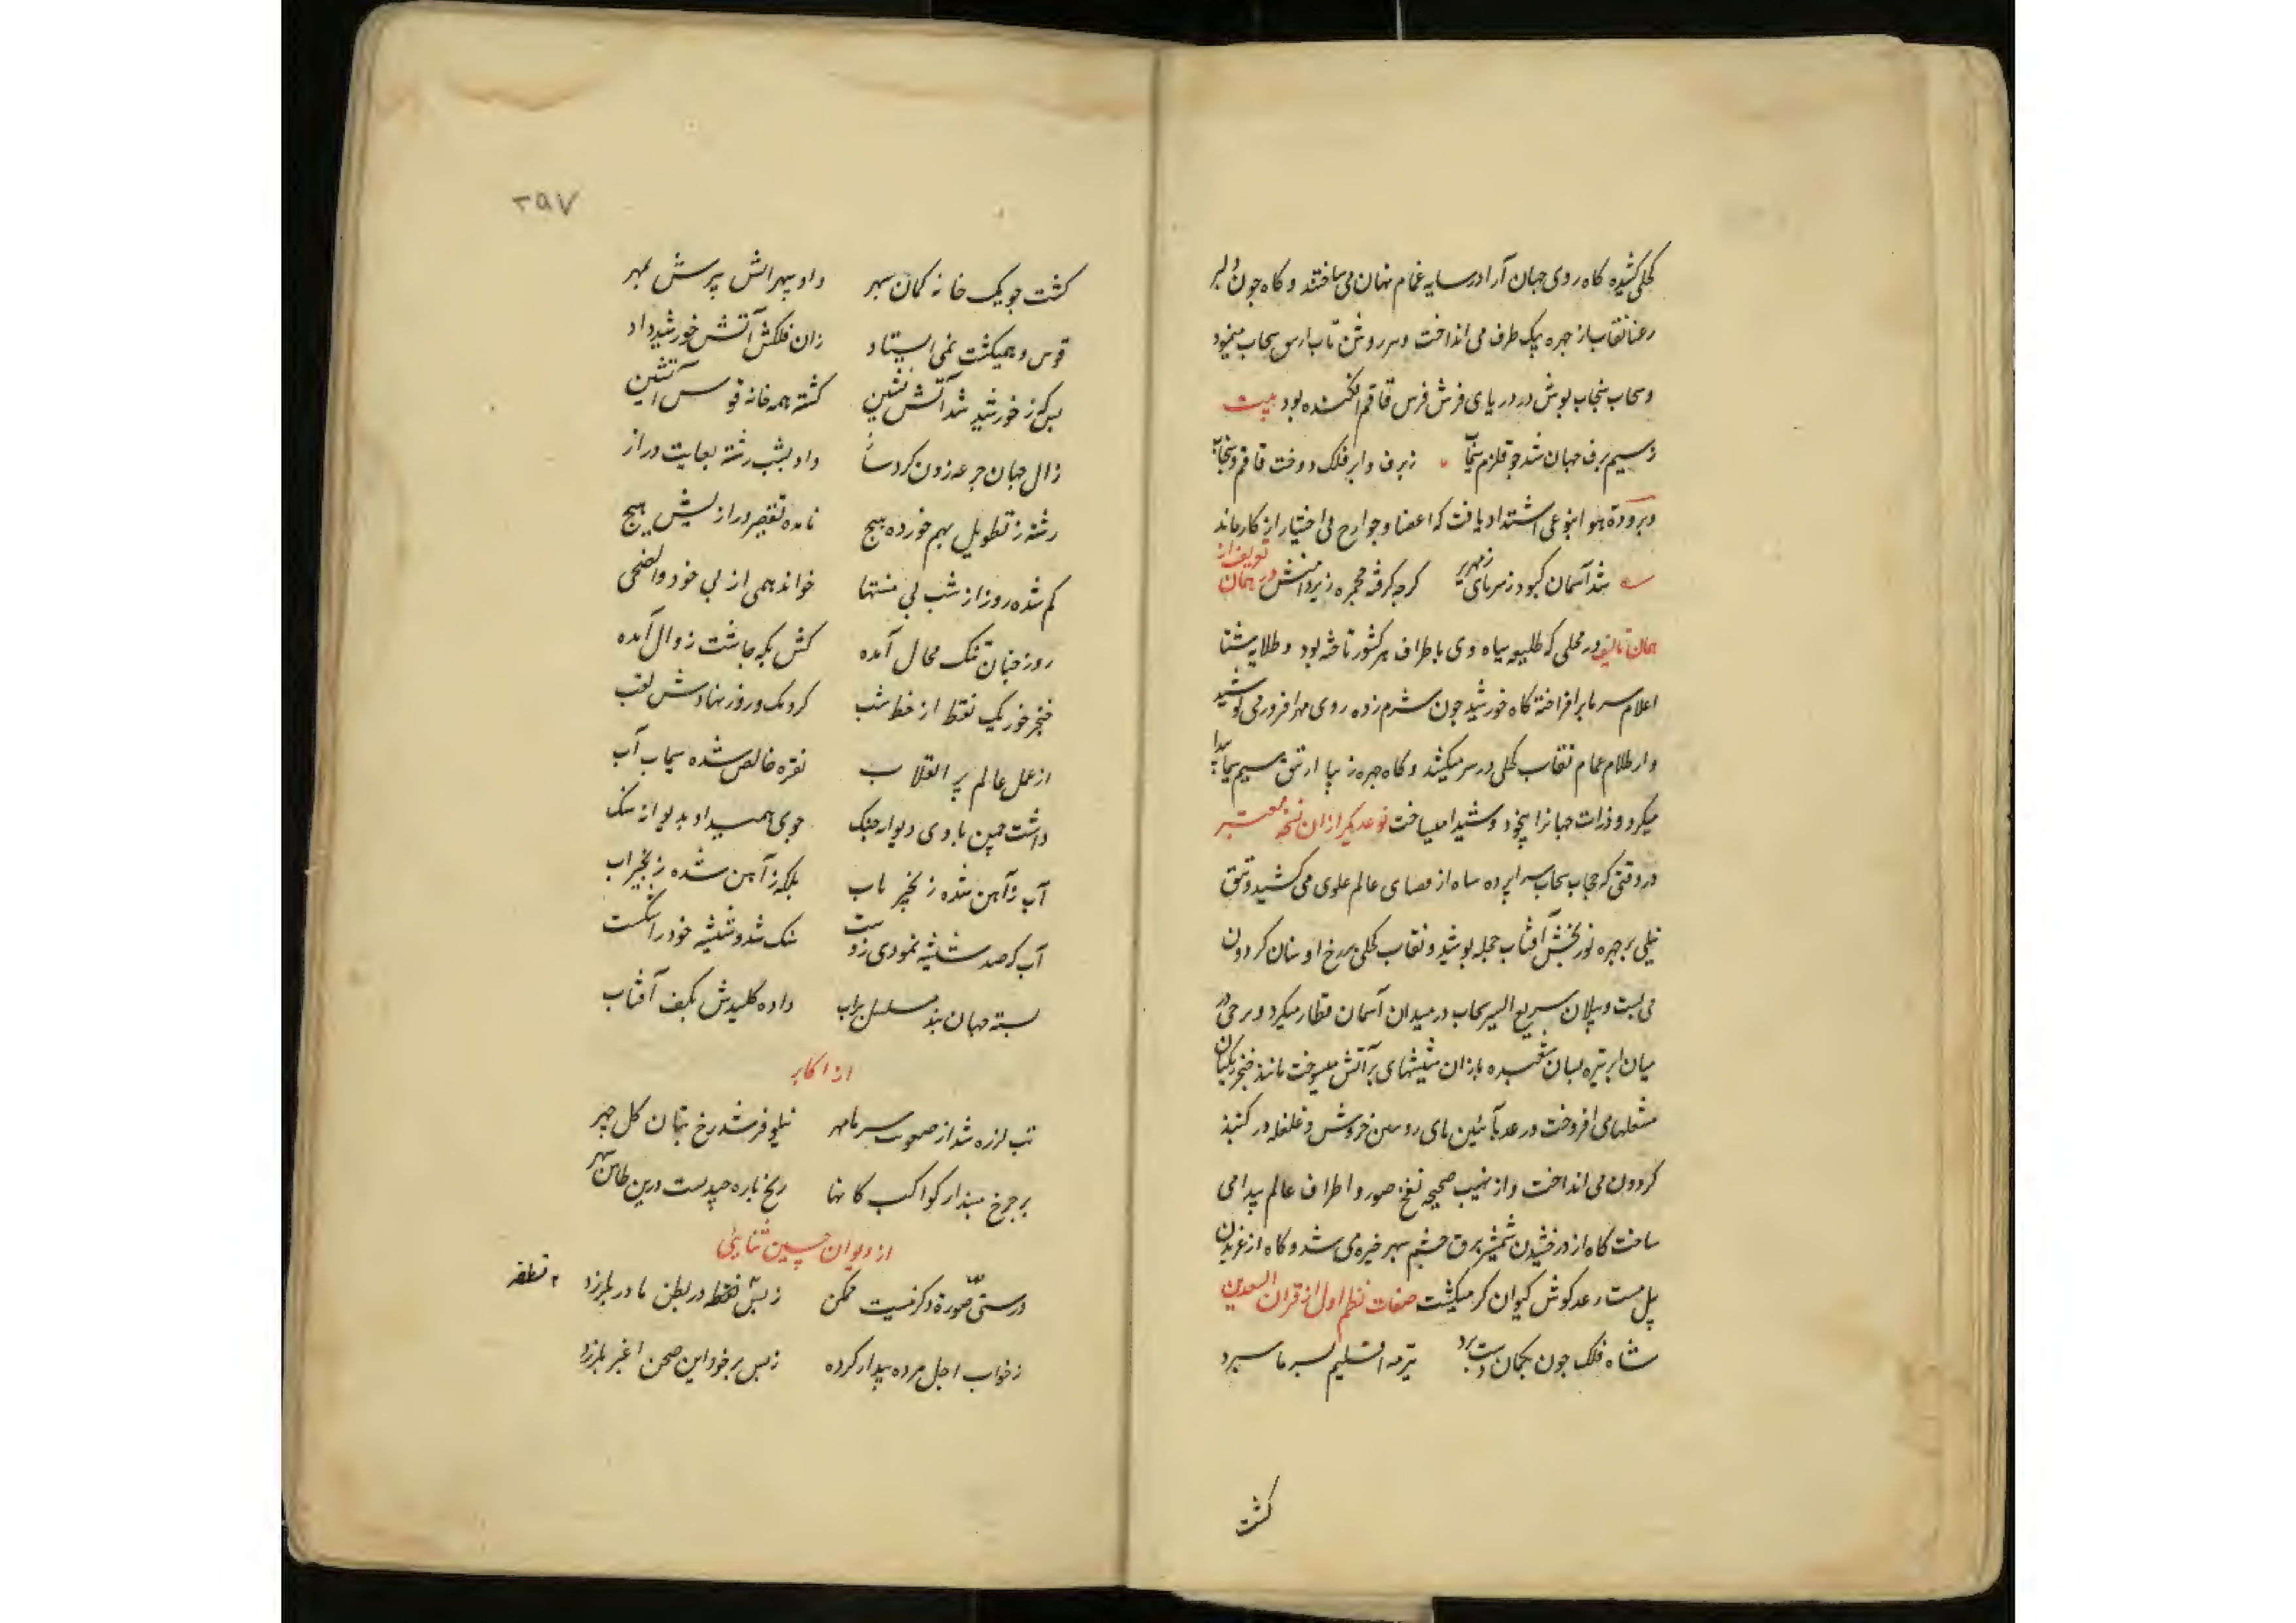 کحلی کشیده کاه روی جهان آرا در سایه غمام نهان می ساختند و کاه چون دلبر
رعنا نقاب از چهره بیک طرف می انداخت و سحاب مینمود
و سحاب سنجاب پوش در دریای فرش قاقم افکنده بود بیت
ز سیم برف جهان شد چو قلزم سیماب ز برف و ابر فلک دوخت قاقم و سنجاب
و برودة هوا بنوعی اشتداد یافت که اعضا و جوارح بی اختیار از کار ماند
شد آسمان کبود ز سرمای زمهریر کرچه کرفته مجمره زیر دامنش تعریف از در همان
همان تالیف در محلی که طلیعه سپاه دی باطراف هر کشور تاخته بود و طلایه شتا
اعلام سرما بر افراخته کاه خورشید چون شرم زده روی مهر افروز می پوشید
و از ظلام غمام نقاب کحلی در سر میکشد و کاه چهره زیبا از تتق سیم سیما پیدا
میکرد و ذرات جهانرا بیخود و شیدا میساخت نوعدیکر از ان نسخه معتبر
در وقتی که حجاب سحاب سراپرده سیاه از فضای عالم علوی می کشید و تتق
نیلی بر چهره نور بخش آفتاب جمله پوشید و نقاب کحلی بر رخ کردون
می بست و پیلان سریع السیر سحاب در میدان آسمان قطار میکرد و برق در
میان ابر تیره بسان شعبده بازان شیشهای پر آتش میسوخت مانند خنجر زنکیان
مشعلها می افروخت و رعد بآئین نای رویین خروش و غلغله در کنبذ
کردون می انداخت و از نهیب صیحه نفخ صور در اطراف عالم پیدا می
ساخت کاه از درخشیدن شمشیر برق چشم سپهر خیره می شد و کاه از غریدن
پیل مست رعد کوش کیوان کر میکشت صفات نظم اول از قران السعدین
شاه فلک چون بکمان دست برد تیر مه اقلیم بسرما سپرد
کشت
۲۹۷
کشت چو یک خانه کمان سپهر داد سپهرانش پرسش بمهر
قوس و همیکشت نمی ایستاد زان فلکش آتش خورشید داد
بسکه ز خورشید شد آتش نشین کشته همه خانه قوس آتشین
زال جهان چرخه زدن کرد ساز داد بشب رشته بغایت دراز
رشته ز تطویل بهم خورده پیچ نامده تقصیر درازیش هیچ
کم شده روز از شب بی منتها خواند همی از پی خود والضحی
روز چنان تنک مجال آمده کش بکه چاشت زوال آمده
خنجر خور یک نقط از خط شب کردمک روز نهادش لقب
از عمل عالم پر انقلاب نقره خالص شده سیماب آب
داشت چمن با دی دیوانه جنک جوی همیداد بدیوانه سنک
آب ز آهن شده زنجیر ناب بلکه ز آهن شده زنجیر آب
آب که صد شیشه نمودی ز دست سنک شد و شیشه خود را شکست
بسته جهان بند مسلسل بر آب داده کلیدش بکف آفتاب
از اکابر
تب لرزه شد از صعوبت سرما مهر نیلوفر شد رخ بتان کل چهر
بر چرخ مپندار کواکب کانها یخ پاره چپیدست درین طاس سپهر
از دیوان حسین ثنایی
درستی صورة دکر نیست ممکن ز بس نقطه در بطن مادر بلرزد
۲ نطفه
ز خواب اجل مرده بیدار کرده ز بس بر خود این صحن اغبر بلرزد